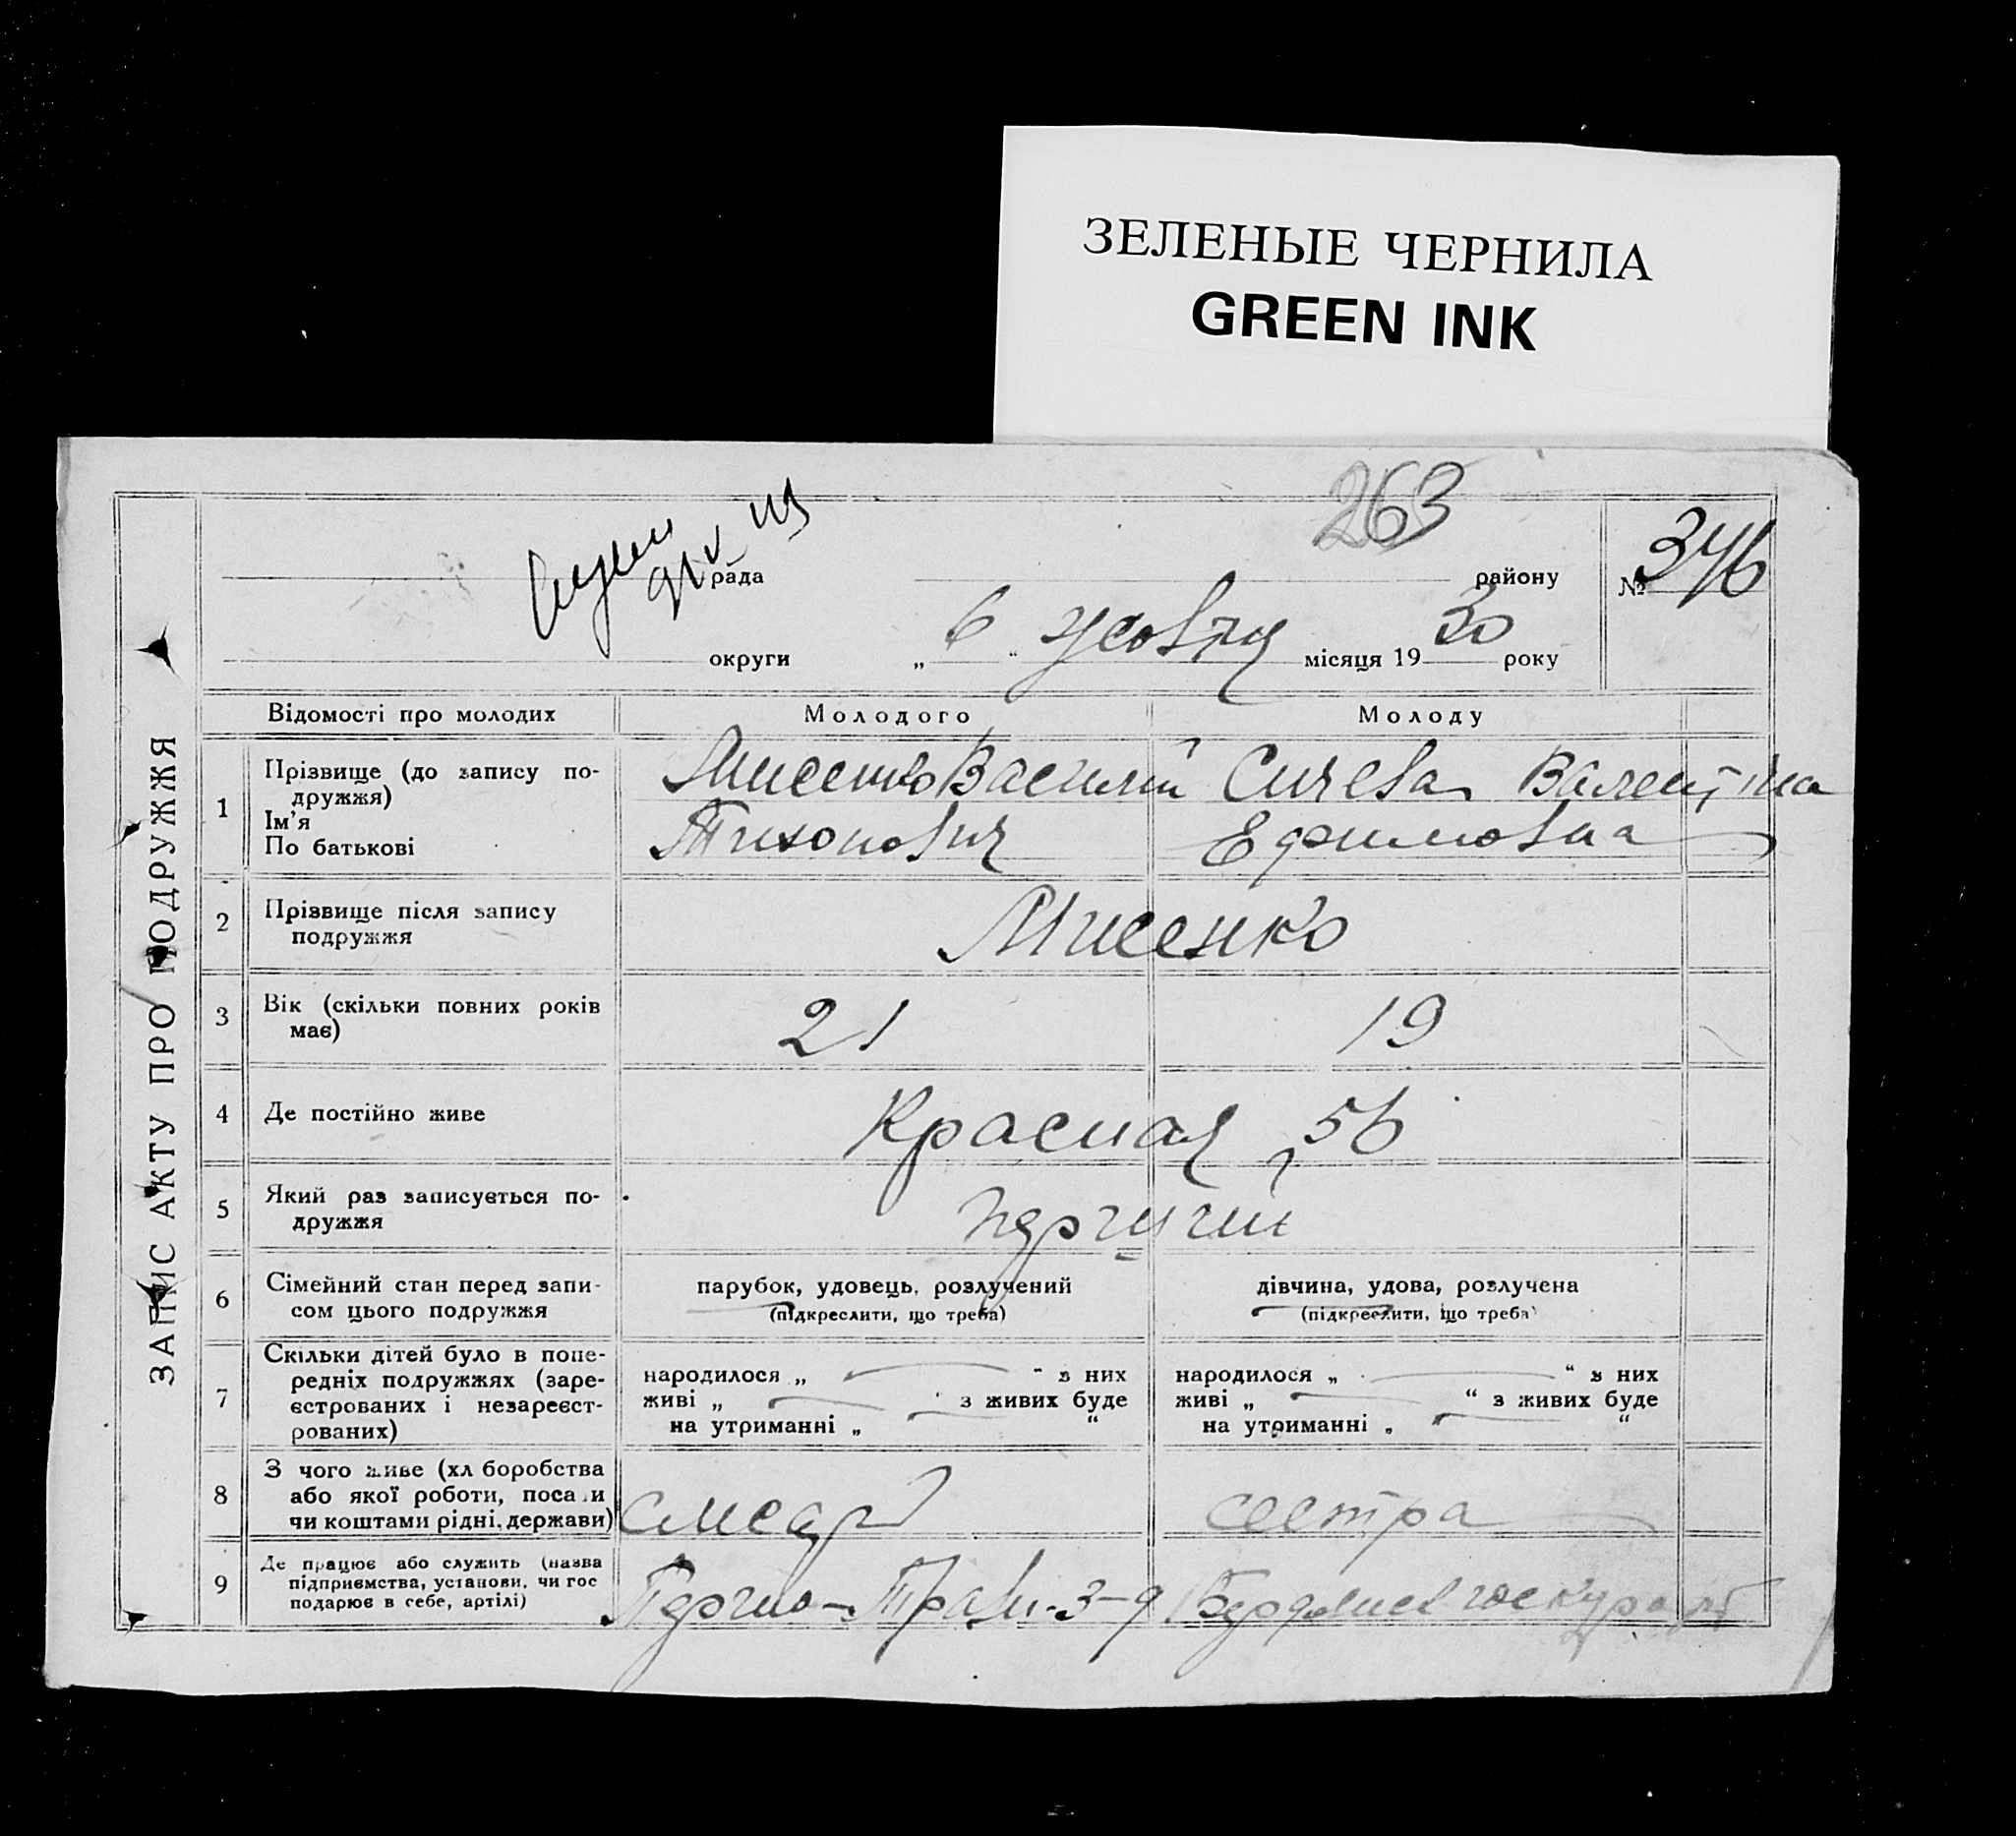 ЗЕЛЕНЫЕ ЧЕРНИЛА
GREEN INK
263
рада району № 346
округи „ 6 “ жовтня місяця 1930 року
ЗАПИС АКТУ ПРО ПОДРУЖЖЯ
Відомості про молодих Молодого Молоду
1 Прізвище (до запису по-
дружжя)
Ім’я
По батькові
Мисенко Василий
Тихонович
Сичева Валентина
Ефимовна
2 Прізвище після запису
подружжя
Мисенко
3 Вік (скільки повних років
має)
21 19
4 Де постійно живе
Красная, 56
5 Який раз записується по-
дружжя
6 Сімейний стан перед запи-
сом цього подружжя
парубок, удовець, розлучений
(підкреслити, що треба)
дівчина, удова, розлучена
(підкреслити, що треба)
7 Скільки дітей було в попе-
редніх подружжях (заре-
єстрованих і незареєст-
рованих)
народилося „ “ з них
живі „ “ з живих буде
на утриманні „ “
народилося „ “ з них
живі „ “ з живих буде
на утриманні „ “
8 З чого живе (хл боробства
або якої роботи, посади
чи коштами рідні, держави)
слесар сестра
9 Де працює або служить (назва
підприємства, установи, чи гос
подарює в себе, артілі)